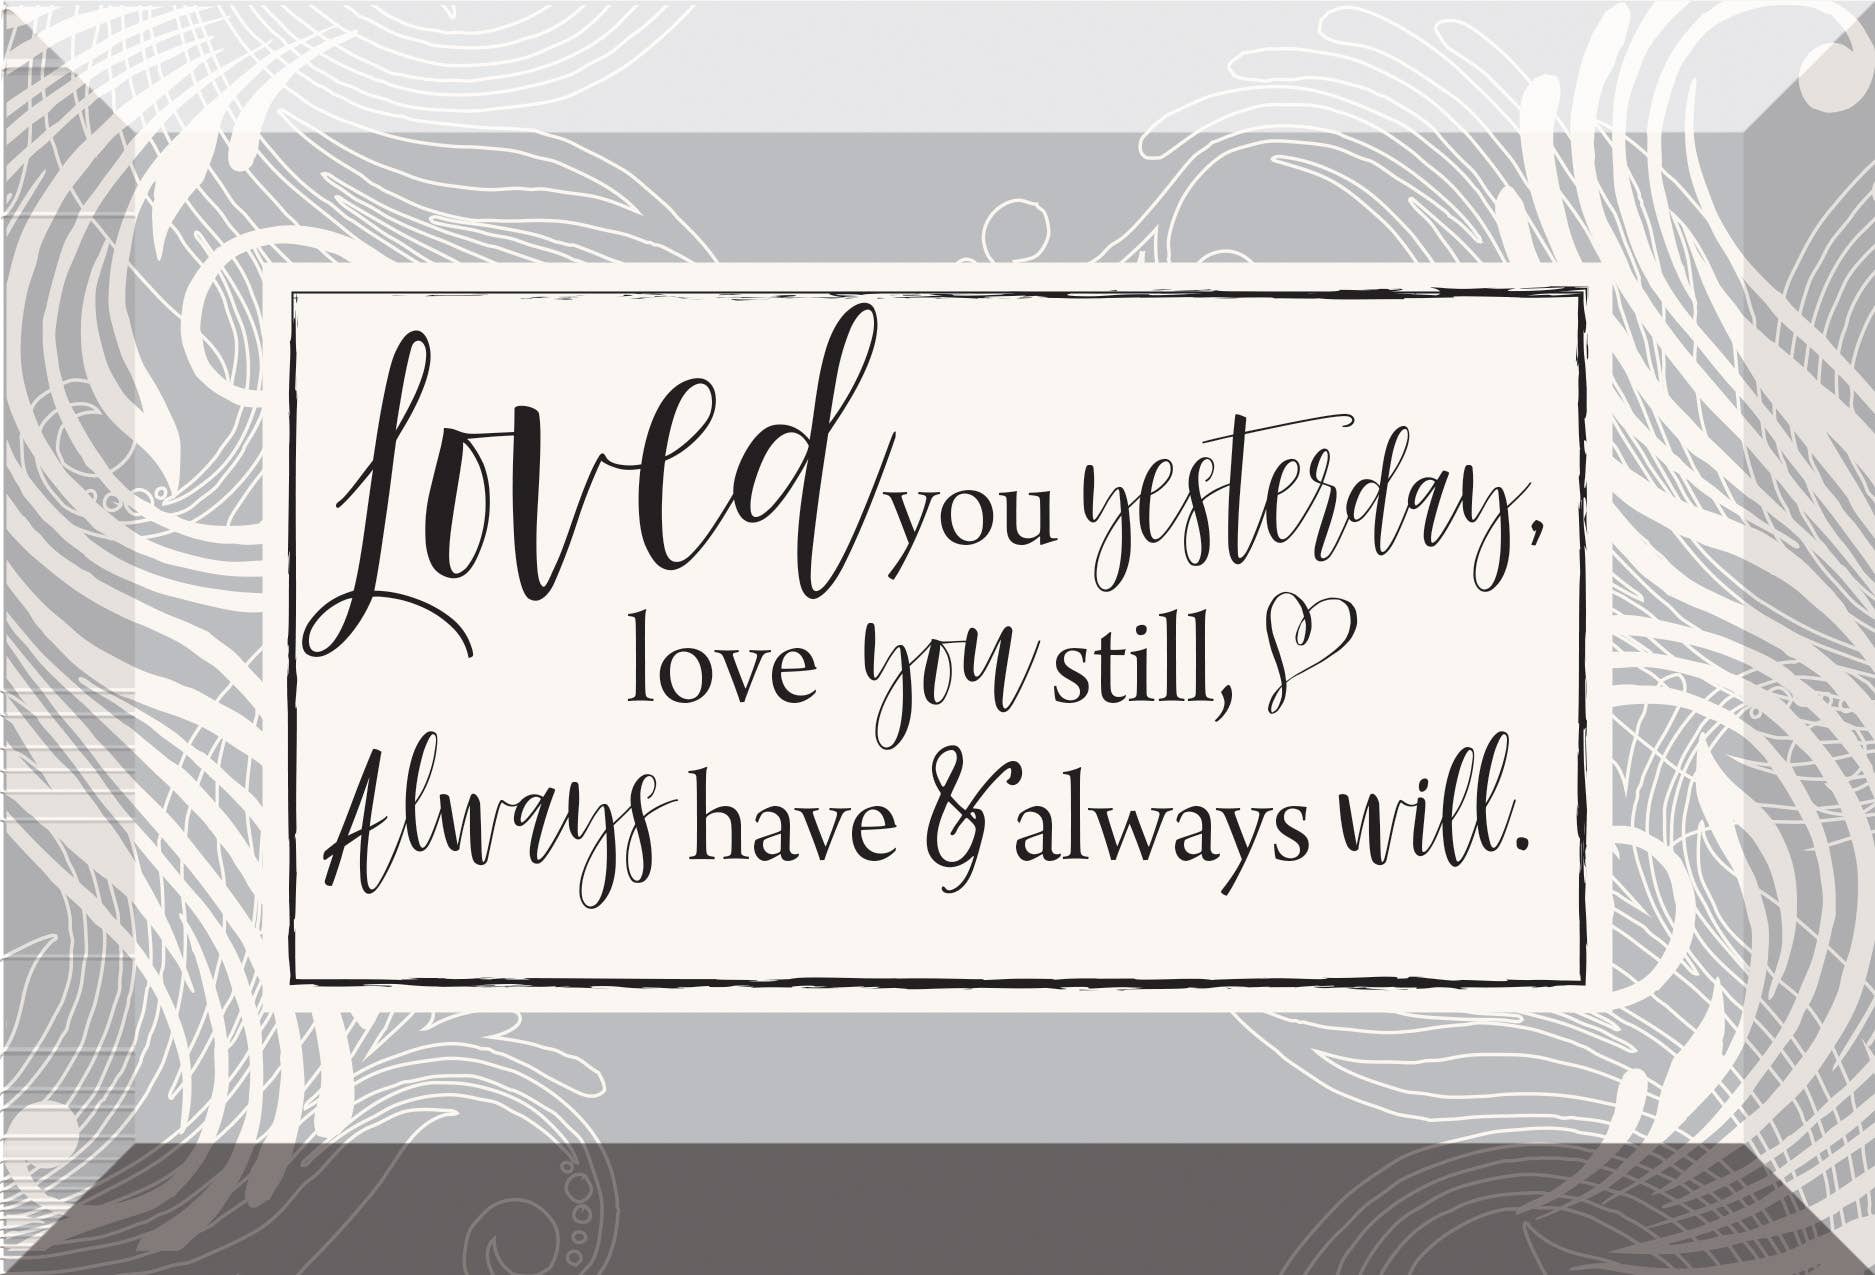 Loved you yesterday,
love you still,
Always have & always will.